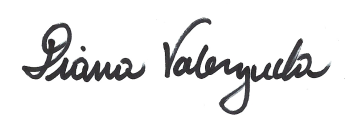 Diana Valenzuela